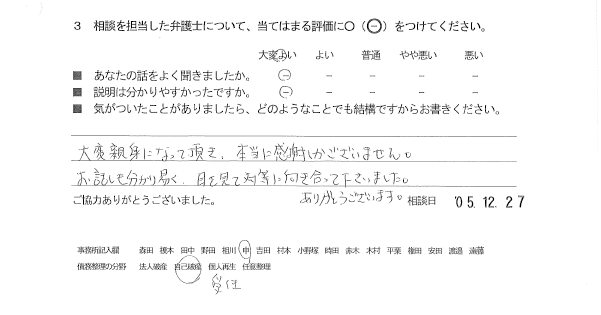 3 相談を担当した弁護士について、当てはまる評価に○（⊖）をつけてください。
大変よい よい 普通 やや悪い 悪い
■ あなたの話をよく聞きましたか。 － － － － －
■ 説明は分かりやすかったですか。 － － － － －
■ 気がついたことがありましたら、どのようなことでも結構ですからお書きください。
大変親身になって頂き、本当に感謝しかございません。
お話しも分かり易く、目を見て対等に向き合って下さいました。
ありがとうございます。
ご協力ありがとうございました。 相談日 '05.12.27
事務所記入欄 森田 榎本 田中 野田 相川 申 吉田 村本 小野塚 時田 赤木 木村 平栗 権田 安田 渡邉 遠藤
債務整理の分野 法人破産 自己破産 個人再生 任意整理
受任